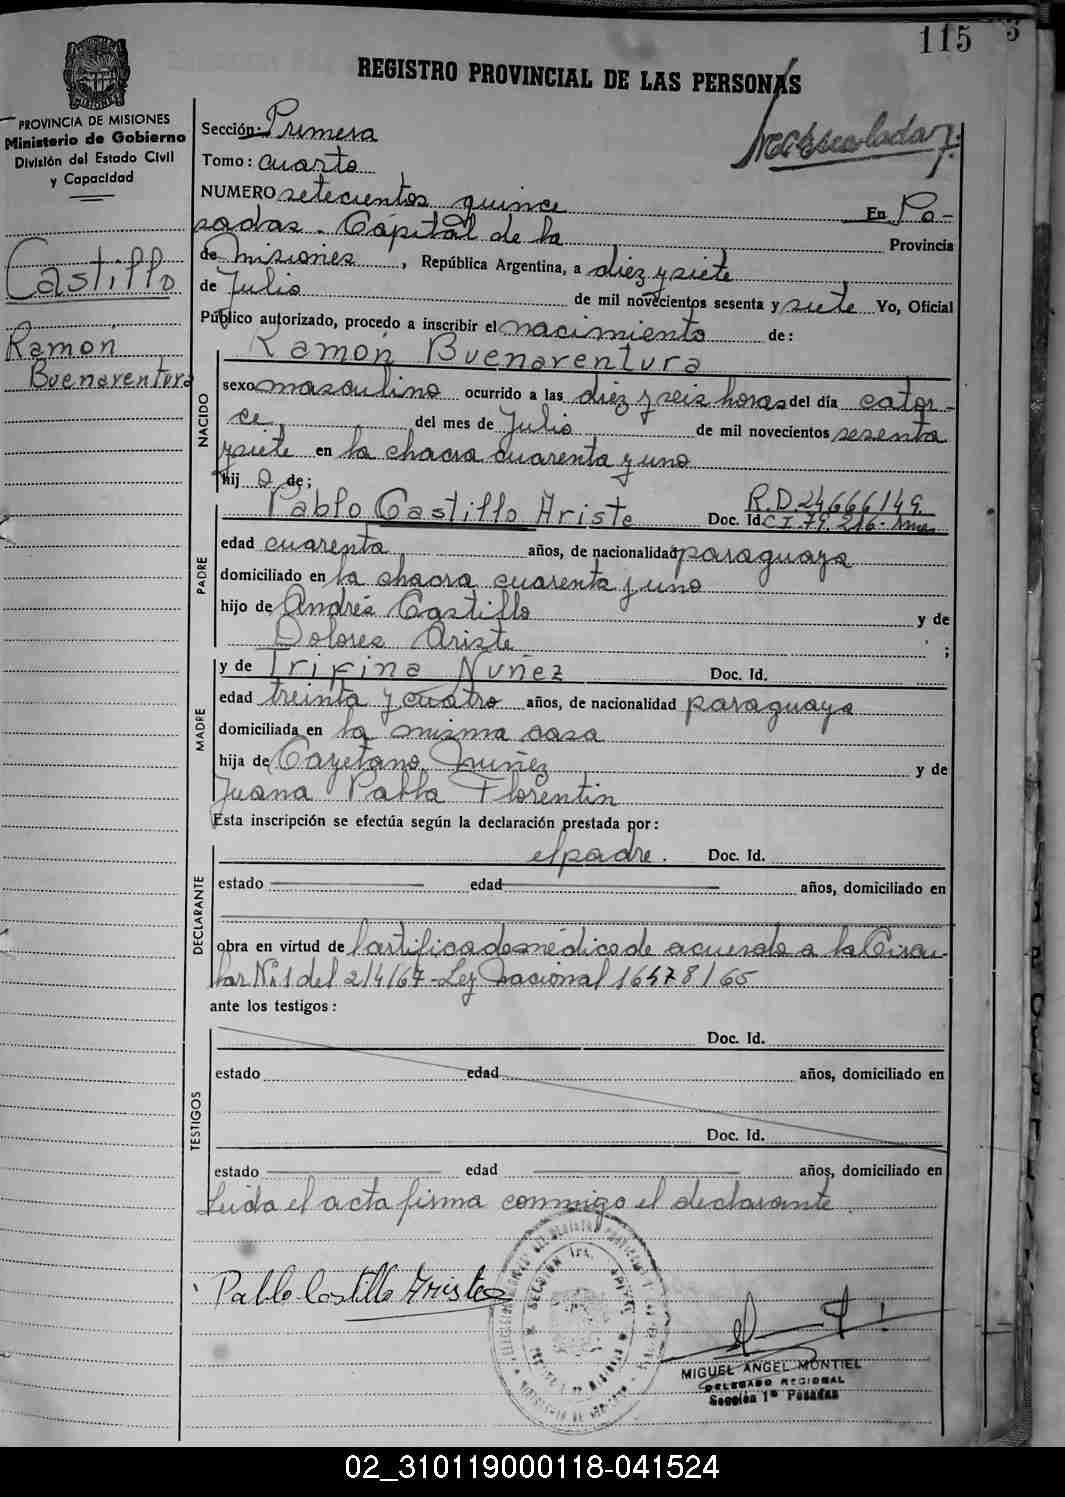 115
REGISTRO PROVINCIAL DE LAS PERSONAS
PROVINCIA DE MISIONES
Ministerio de Gobierno
División del Estado Civil
y Capacidad
Castillo
Ramón
Buenaventura
Sección: Primera
Tomo: cuarto
NUMERO setecientos quince En Po-
sadas. Capital de la Provincia
de Misiones, República Argentina, a diez y siete
de Julio de mil novecientos sesenta y siete Yo, Oficial
Público autorizado, procedo a inscribir el nacimiento de:
NACIDO
Ramón Buenaventura
sexo masculino ocurrido a las diez y seis horas del día cator-
ce, del mes de Julio de mil novecientos sesenta
y siete en la chacra cuarenta y uno
hij o de;
PADRE
R.D. 24666149
Pablo Castillo Ariste Doc. Id. C I. 79.216-
edad cuarenta años, de nacionalidad paraguaya
domiciliado en la chacra cuarenta y uno
hijo de Andrés Castillo y de
Dolores Ariste ;
MADRE
y de Trifina Nuñez Doc. Id.
edad treinta y cuatro años, de nacionalidad paraguaya
domiciliada en la misma casa
hija de Cayetano Nuñez y de
Juana Pabla Florentin
Esta inscripción se efectúa según la declaración prestada por:
DECLARANTE
el padre. Doc. Id.
estado edad años, domiciliado en
obra en virtud de certificado médico de acuerdo a la Circu-
lar Nº 1 del 2/4/67-Ley Nacional 16478/65
ante los testigos:
TESTIGOS
Doc. Id.
estado edad años, domiciliado en
Doc. Id.
estado edad años, domiciliado en
Leida el acta firma conmigo el declarante.
Pablo Castillo Ariste
MIGUEL ANGEL MONTIEL
DELEGADO REGIONAL
Sección 1ª Posadas
02_310119000118-041524